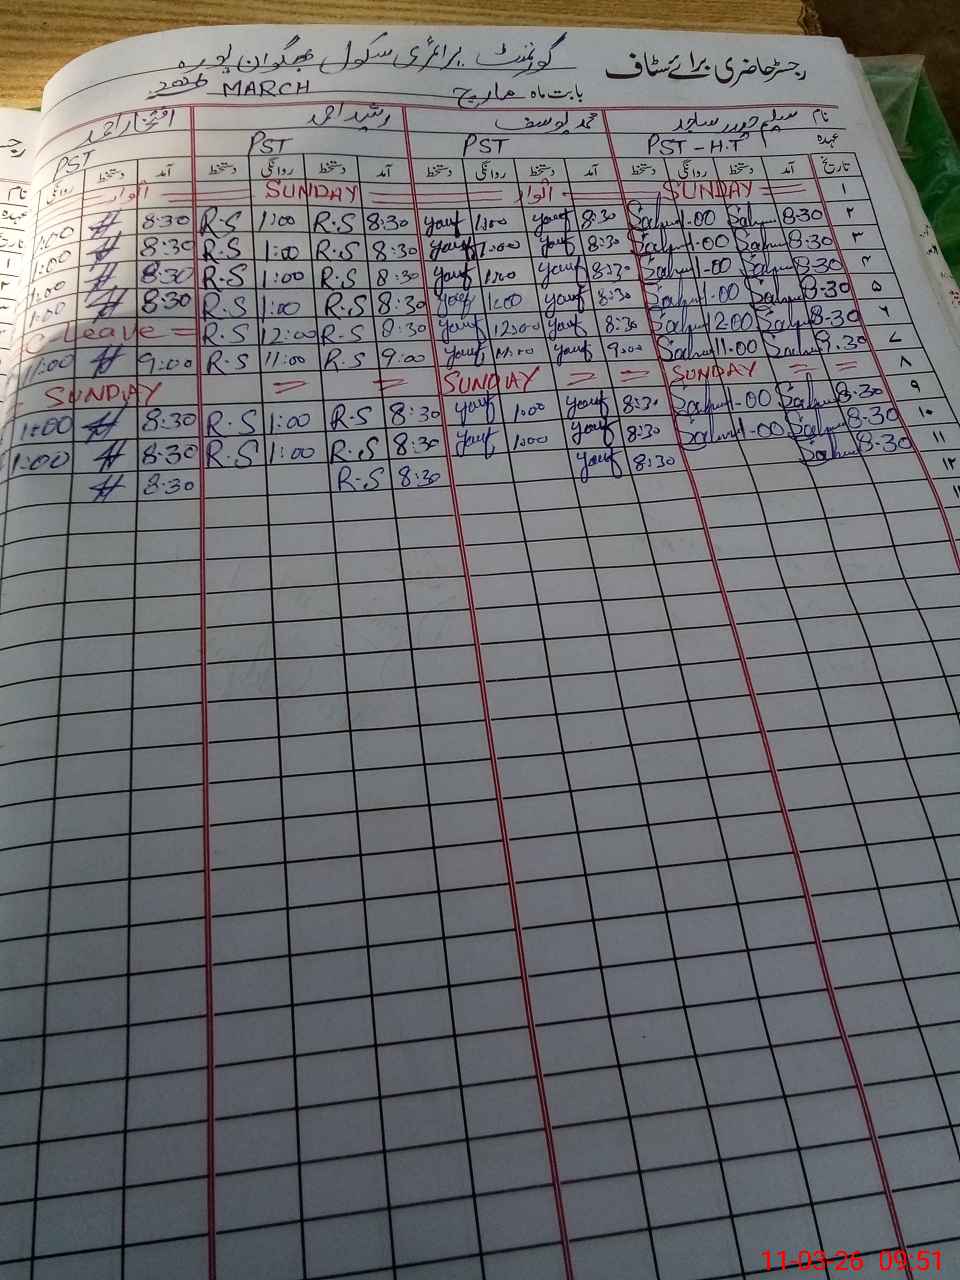 رجسٹر حاضری برائے سٹاف گورنمنٹ پرائمری سکول بھگوان پورہ
بابت ماہ مارچ MARCH
نام سلیم حیدر ساجد محمد یوسف رشید احمد افتخار احمد
عہدہ PST-H.T PST PST PST
تاریخ آمد دستخط روانگی دستخط آمد دستخط روانگی دستخط آمد دستخط روانگی دستخط آمد دستخط روانگی
۱ SUNDAY اتوار SUNDAY اتوار
۲ 8-30 1-00 8:30 1:00 8:30 R.S 1:00 R.S 8:30 1:00
۳ 8-30 1-00 8:30 1:00 8:30 R.S 1:00 R.S 8:30 1:00
۴ 8-30 1-00 8:30 1:00 8:30 R.S 1:00 R.S 8:30 1:00
۵ 8-30 1-00 8:30 1:00 8:30 R.S 1:00 R.S 8:30 1:00
۶ 8-30 12-00 8:30 12:00 8:30 R.S 12:00 R.S C Leave
۷ 11.00 9:00 9:00 R.S 11:00 R.S 9:00 11:00
۸ SUNDAY SUNDAY SUNDAY
۹ 8-30 1-00 8:30 1:00 8:30 R.S 1:00 R.S 8:30 1:00
۱۰ 8-30 1-00 8:30 1:00 8:30 R.S 1:00 R.S 8:30 1:00
۱۱ 8-30 8:30 8:30 R.S 8:30
۱۲
11-03-26 09:51